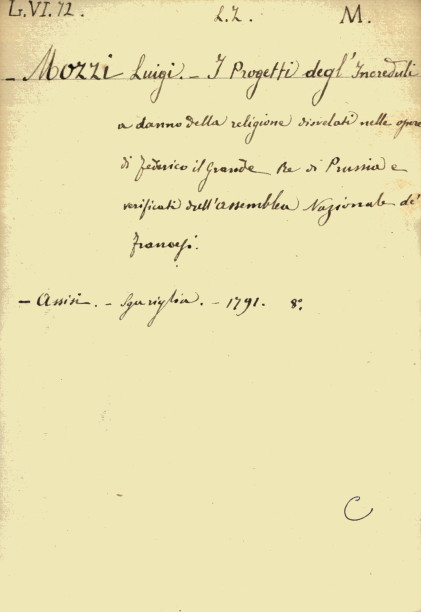 L.VI.72. L.Z. M.
- Mozzi Luigi. - I Progetti degl'Increduli
a danno della religione disvelati nelle opere
di Federico il Grande Re di Prussia e
verificati dall'assemblea Nazionale de'
Francesi.
- Assisi. - Sgariglia. - 1791. 8°.
C